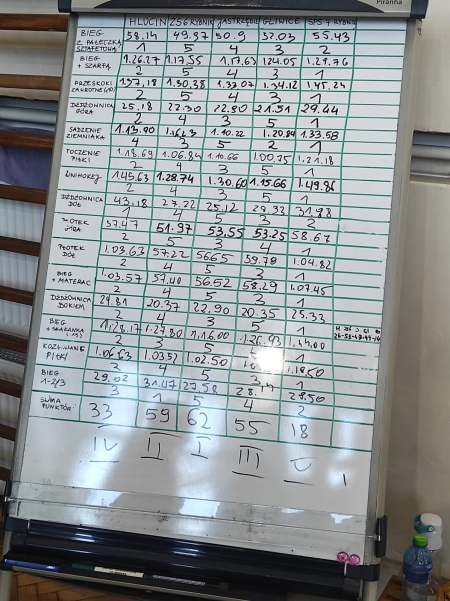 Piranha
HLUČIN ZS6 RYBNIK JASTRZĘBIE GLIWICE SPS 7 RYBNIK
BIEG Z PAŁECZKĄ SZTAFETOWĄ 58.14 49.97 50.9 52.03 55.43
1 5 4 3 2
BIEG + SZARFA 1.26.27 1.17.55 1.17.63 1.24.05 1.29.76
2 5 4 3 1
PRZESKOKI 1.37.18 1.30.38 1.33.07 1.34.12 1.45.24
2 5 4 3 1
DŻDŻOWNICA GÓRA 25.18 22.30 22.90 21.51 29.44
2 4 3 5 1
SADZENIE ZIEMNIAKA 1.13.90 1.10.22 1.20.84 1.33.58
4 3 5 2 1
TOCZENIE PIŁKI 1.18.69 1.06.84 1.10.66 1.00.75 1.21.18
2 4 3 5 1
UNIHOKEJ 1.45.63 1.28.74 1.30.60 1.15.66 1.49.86
2 4 3 5 1
DŻDŻOWNICA DÓŁ 43.18 27.22 25.12 29.33 31.98
1 4 5 3 2
PŁOTEK GÓRA 57.47 51.97 53.55 53.25 58.67
2 5 3 4 1
PŁOTEK DÓŁ 1.03.63 57.22 56.65 59.78 1.04.82
2 4 5 3 1
BIEG + MATERAC 1.03.57 57.40 56.52 58.29 1.07.45
2 4 5 3 1
DŻDŻOWNICA BOKIEM 24.81 20.37 22.90 20.35 25.33
2 4 3 5 1
BIEG + SKAKANKA 1.28.17 1.27.80 1.16.00 1.26.93
2 3 5 4 1
KOZŁOWANIE PIŁKI 1.02.50
3 4 5 1
BIEG 1-2/3 29.02 31.47 27.58 28.50
3 1 5 4 2
SUMA PUNKTÓW: 33 59 62 55 18
IV II I III V